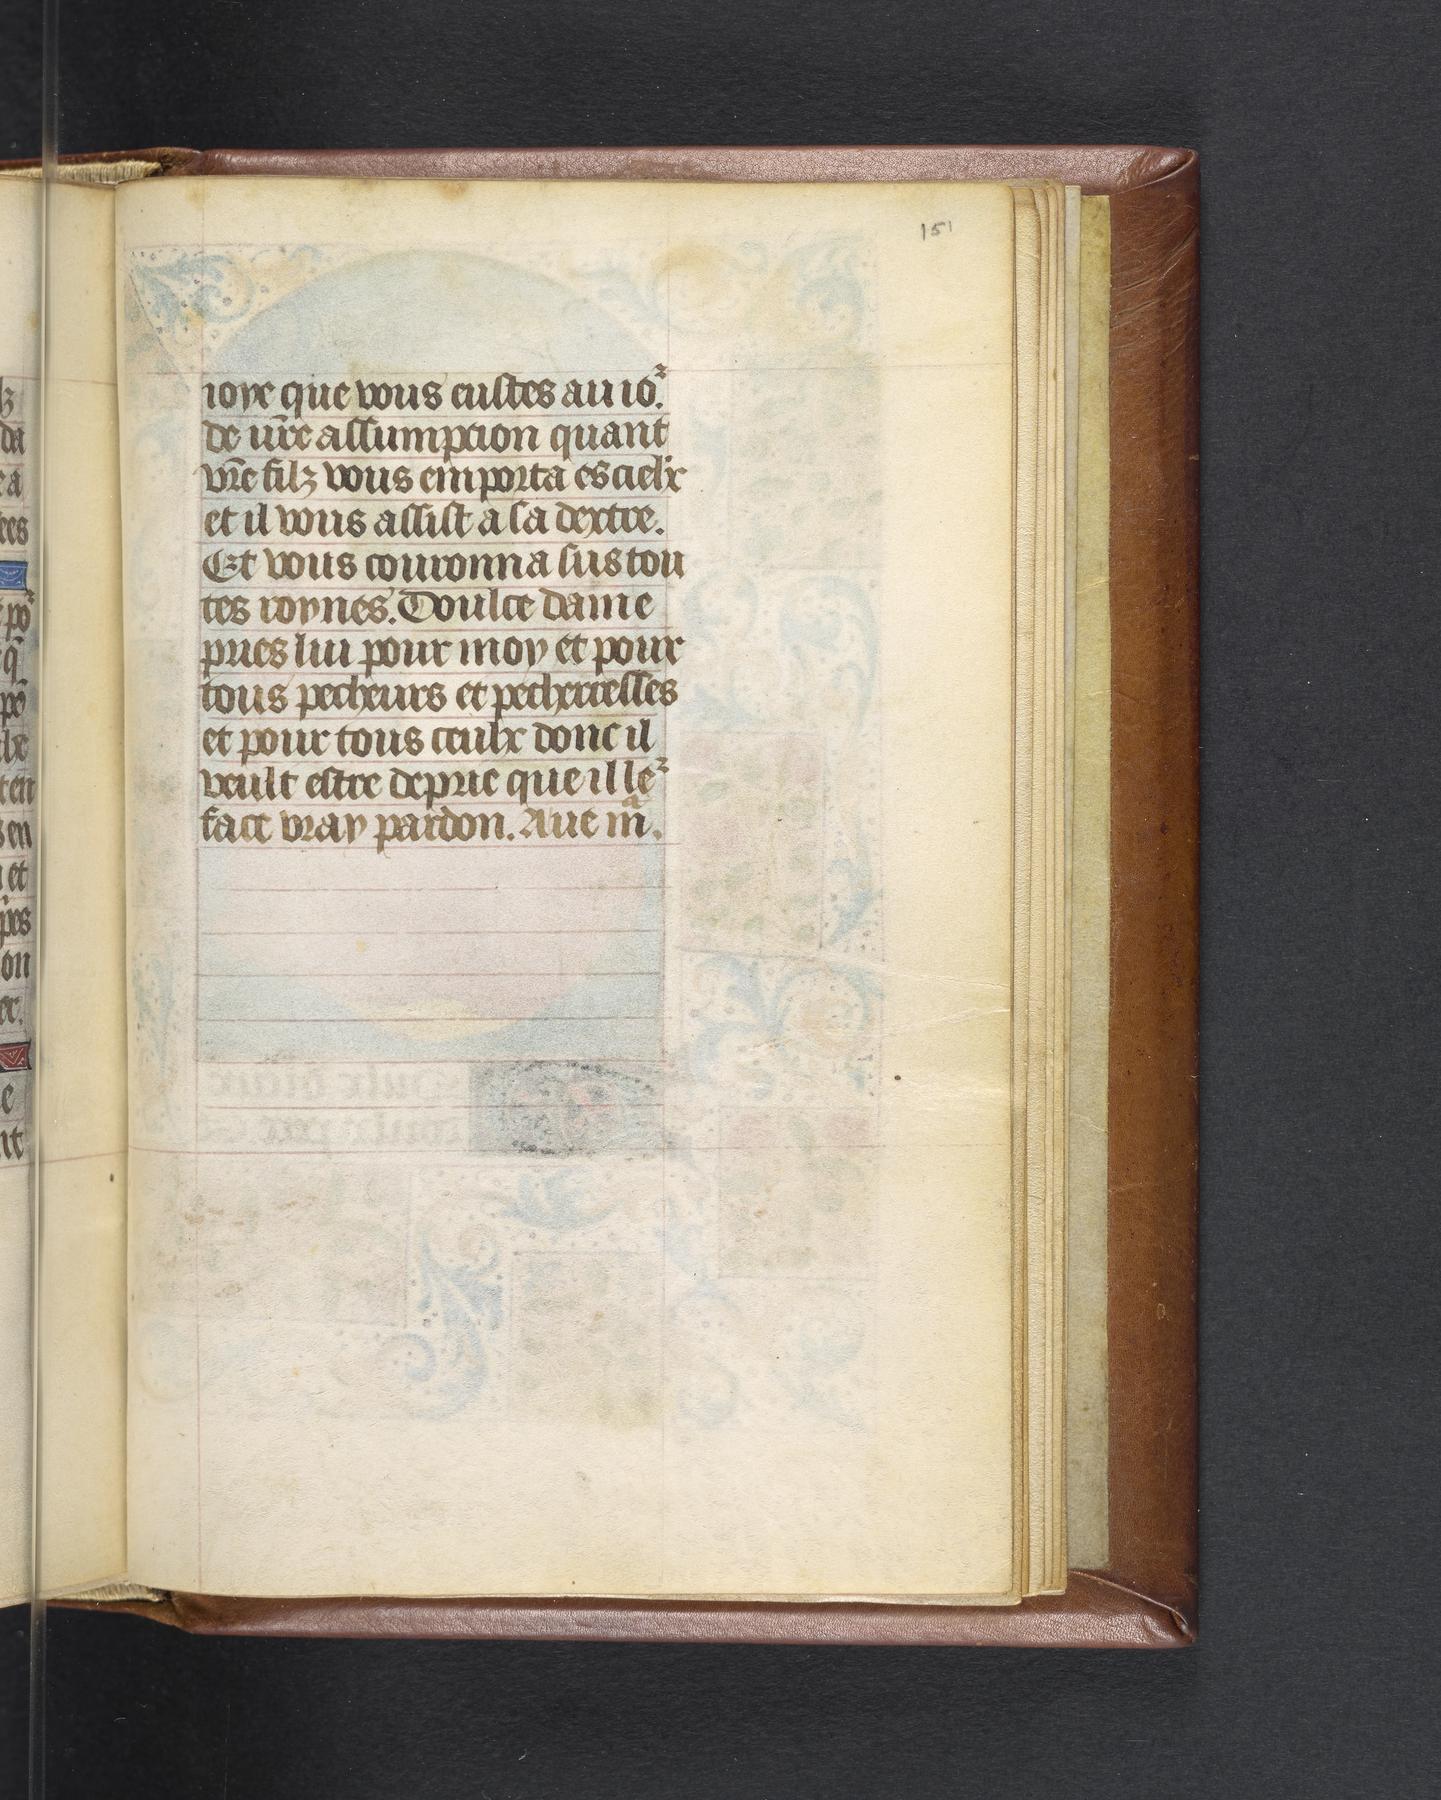 151
ioye que vous eustes au io᷑.
de vr̃e assumpcion quant
vr̃e filz vous emporta es cielx
et il vous assist a sa dextre.
Et vous couronna sus tou
tes roynes. Doulce dame
pries lui pour moy et pour
tous pecheurs et pecherresses
et pour tous ceulx donc il
veult estre deprie que il le᷑
face vray pardon. Aue mͣ.